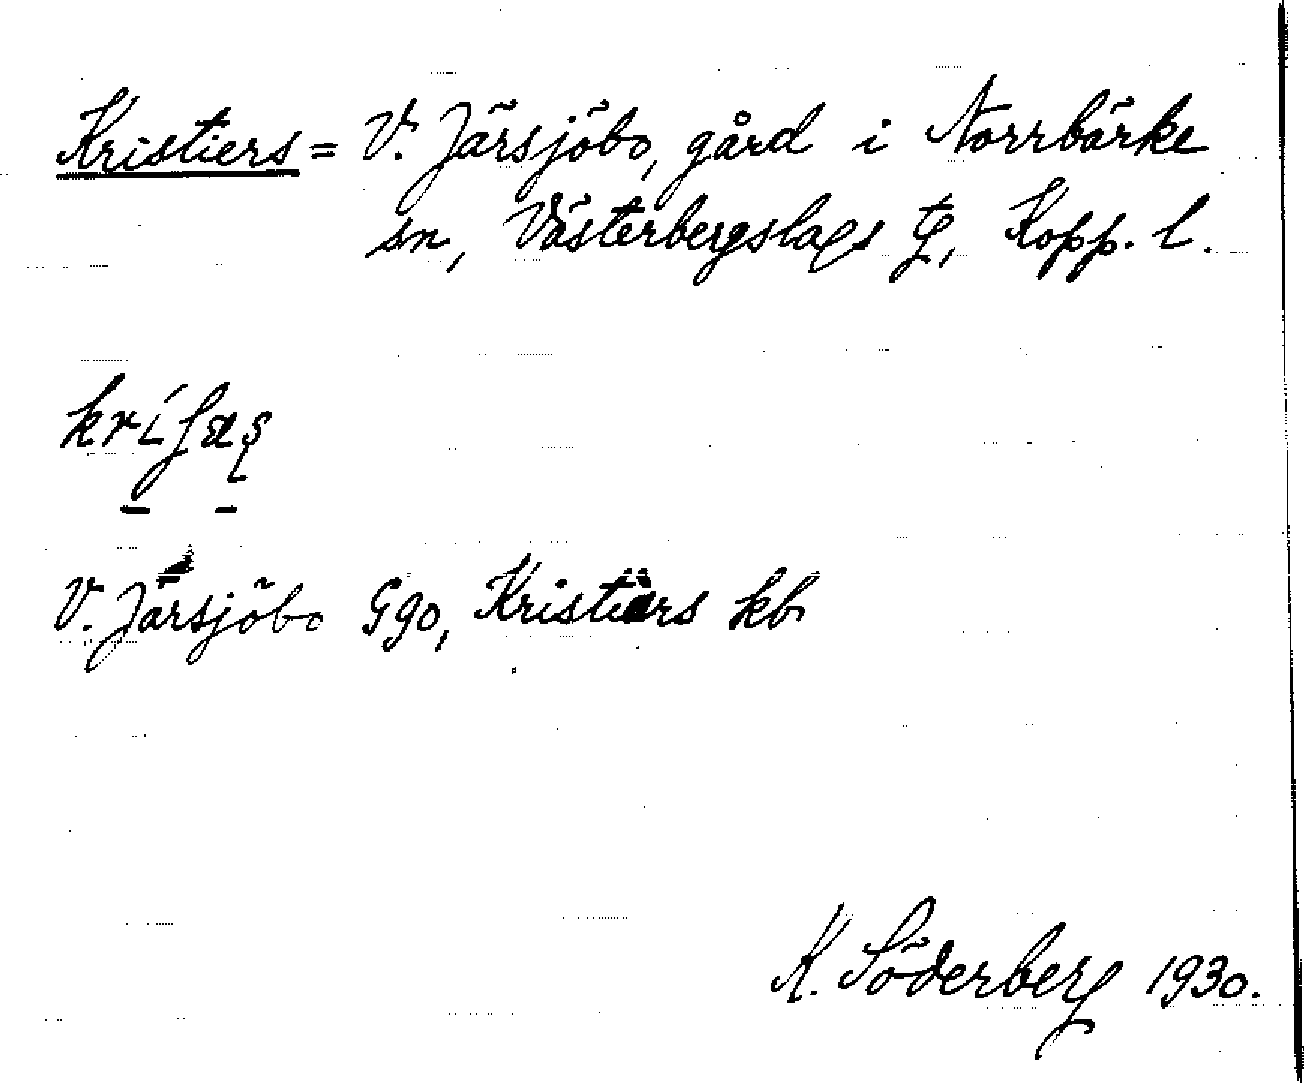 Kristiers = V. Järsjöbo, gård i Norrbärke
sn, Västerbergslags tg, Kopp. l.
V. Järsjöbo Ggo, Kristiers kb
K. Söderberg 1930.